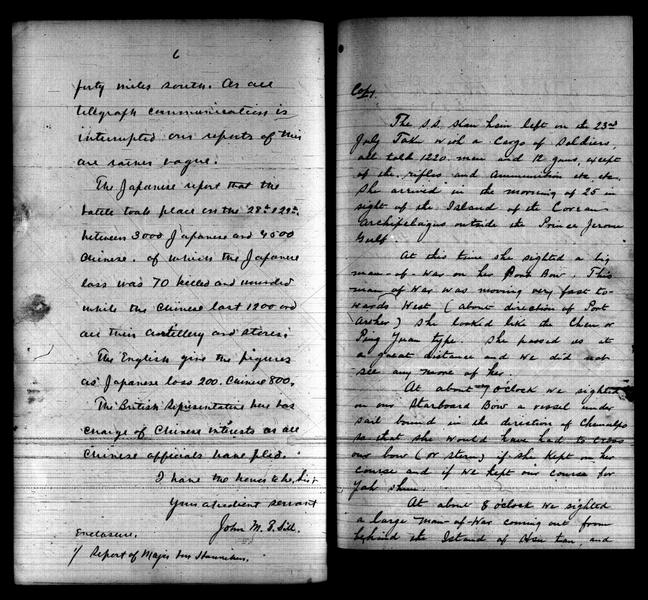 6
forty miles south. As all
telegraph communication is
interrupted our reports of this
are rather vague.
The Japanese report that the
battle took place on the 28th & 29th,
between 3000 Japanese and 4500
Chinese. of which the Japanese
loss was 70 killed and wounded
while the Chinese lost 1200 and
all their artillery and stores.
The English give the figures
as Japanese loss 200. Chinese 800.
The British Representative here has
charge of Chinese interests as all
Chinese officials have fled.
I have the honor to be, Sir
Your obedient servant
John M. B. Sill.
Enclosure.
1/ Report of Major von Hanneken.
Copy.
The S.S. Kow left on the 23rd
July Taku with a Cargo of Soldiers,
all told 1220 men and 12 guns, except
of the rifles and Ammunition etc. etc.
She arrived in the morning of 25 in
sight of the Island of the Corean
Archipelagus outside the Prince Jerome
Gulf.
At this time she sighted a big
man-of-war on her Port Bow. This
man of War was moving very fast to-
wards West (about direction of Port
Arthur) She looked like the Chen or
Ping Yuan type. She passed us at
a great distance and we did not
see any more of her.
At about 7 O'clock we sighted
on our Starboard Bow a vessel under
sail bound in the direction of Chemulpo
so that she would have had to cross
our bow (or stern) if she kept on her
course and if we kept our course for
Yah Shan.
At about 8 o'clock we sighted
a large man-of-War coming out from
behind the Island of tan, and